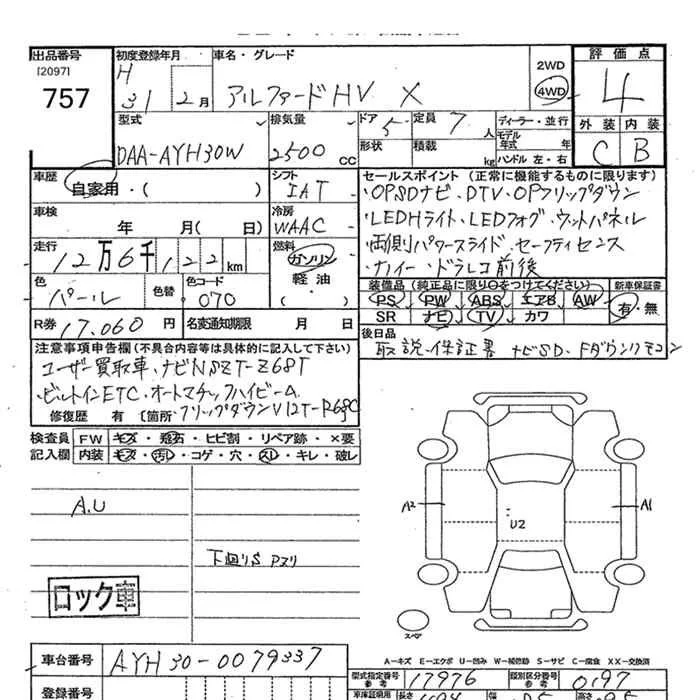 出品番号
[2097]
757
初度登録年月
H
31 2月
車名・グレード
アルファードHV X
2WD
4WD
評価点
4
外装 内装
C B
型式
DAA-AYH30W
排気量
2500 CC
ドア 5
定員 7 人
形状
積載 kg
ディーラー・並行
モデル年式 年
ハンドル 左・右
車歴
自家用・( )
シフト
IAT
セールスポイント (正常に機能するものに限ります)
・OPSDナビ・DTV・OPフリップダウン
・LEDHライト・LEDフォグ・ウットパネル
・両側パワースライド・セーフティセンス
・ナノイー・ドラレコ前後
車検
年 月( 日)
冷房
WAAC
走行
12万6千122km
燃料
ガソリン
軽油
・( )
色
パール
色替
色コード
070
装備品 (純正品に限り○をつけてください)
PS PW ABS エアB AW
SR ナビ TV カワ
新車保証書
有・無
R券 17,060 円
名変通知期限 月 日
後日品
取説・保証書 ナビSD・Fダウンリモコン
注意事項申告欄(不具合内容等は具体的に記入して下さい)
ユーザー買取車・ナビNSZT-Z68T
・ビルトインETC・オートマチックハイビーム
修復歴 有 [箇所・フリップダウンV12T-R68C
検査員 FW キズ・飛石・ヒビ割・リペア跡・×要
記入欄 内装 キズ・汚レ・コゲ・穴・スレ・キレ・破レ
A.U
下廻りS Pスリ
ロック車
A2
U2
A1
スペア
A－キズ E－エクボ U－凹み W－補修跡 S－サビ C－腐食 XX－交換済
車台番号
AYH30-0079337
型式指定番号
参考
17976
類別区分番号
参考
0197
登録番号
車庫証明用
長さ
幅
高さ